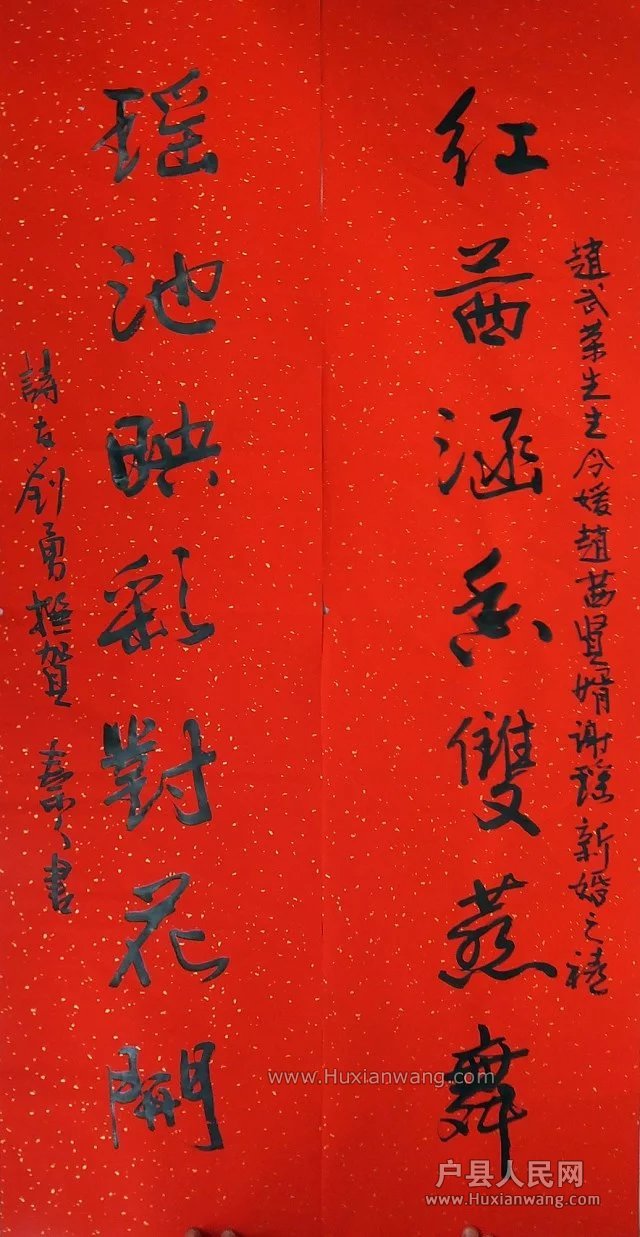 红茜涵香雙燕舞
趙武荣先生令媛趙茜贤婿谢瑶新婚之禧
瑶池映彩對花開
詩友劉勇撰賀 壽人书
www.Huxianwang.com
户县人民网
www.Huxianwang.com